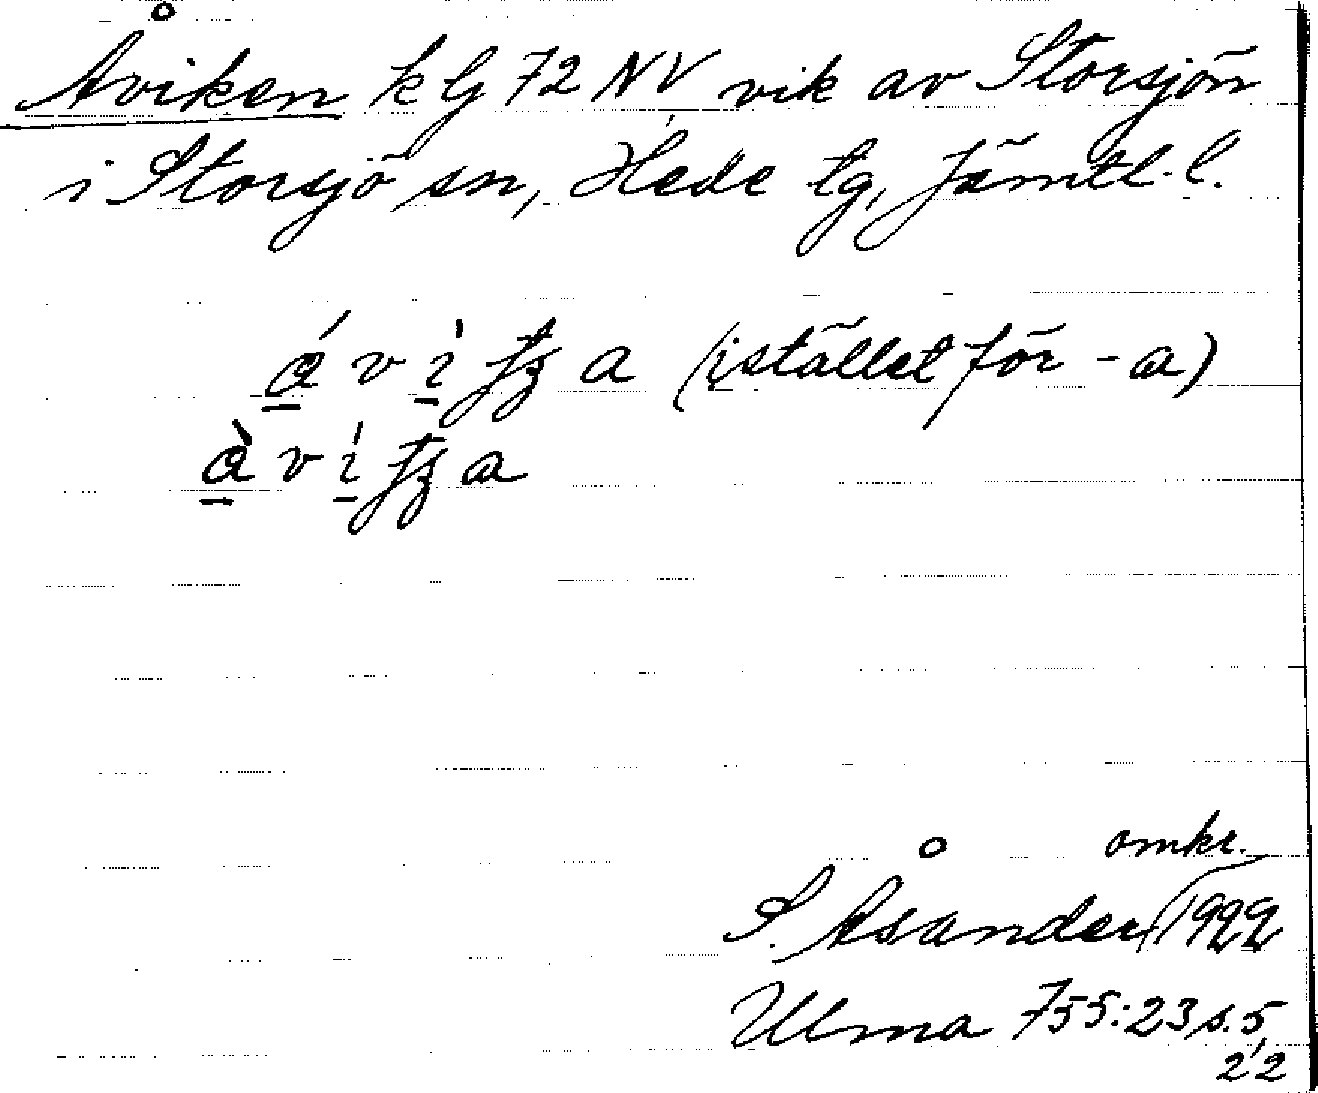 Åviken kbg 72 NV vik av Storsjön
i Storsjö sn, Hede tg, Jämtl. l.
(istället för -a)
omkr.
S. Åsander 1922
Ulma 755:23 s. 5,
22